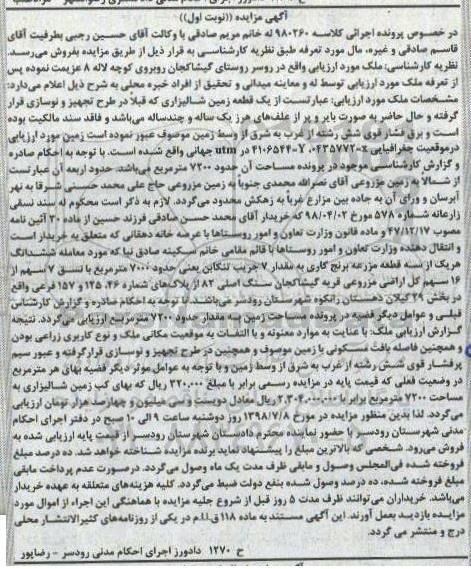 آگهی مزایده ((نوبت اول))
در خصوص پرونده اجرائی کلاسه ۹۸۰۲۶۰ له خانم مریم صادقی با وکالت آقای حسین رجبی بطرفیت آقای
قاسم صادقی و غیره، مال مورد تعرفه طبق نظریه کارشناسی به قرار ذیل از طریق مزایده بفروش می‌رسد.
نظریه کارشناسی: ملک مورد ارزیابی واقع در روسر روستای گیشاکجان روبروی کوچه لاله ۸ عزیمت نموده پس
از تعرفه ملک مورد ارزیابی توسط له و معاینه میدانی و تحقیق از افراد خبره محلی به شرح ذیل اعلام می‌دارد:
مشخصات ملک مورد ارزیابی: عبارتست از یک قطعه زمین شالیزاری که قبلا در طرح تجهیز و نوسازی قرار
گرفته و حال حاضر به صورت بایر و پر از علف‌های هرز یک ساله و چندساله می‌باشد و فاقد سند مالکیت بوده
است و برق فشار قوی شش رشته از غرب به شرق از وسط زمین موصوف عبور نموده است زمین مورد ارزیابی
درموقعیت جغرافیایی ۰۴۳۵۷۷۲=X ۴۱۰۶۵۴۴=Y در utm جهانی واقع شده است. با توجه به احکام صادره
و گزارش کارشناسی موجود در پرونده مساحت آن حدود ۷۲۰۰ مترمربع می‌باشد. حدود اربعه آن عبارتست
از شمالا به زمین مزروعی آقای نصرالله محمدی جنوبا به زمین مزروعی حاج علی محمد حسنی شرقا به نهر
آبرسان و ورای آن به جاده بین مزارع غربا به زهکش محدود می‌گردد. لازم به ذکر است محکوم له سند نسقی
زارعانه شماره ۵۷۸ مورخ ۹۸/۰۴/۰۲ که خریدار آقای محمد حسن صادقی فرزند حسین از ماده ۳۰ آئین نامه
مصوب ۴۷/۱۲/۱۷ و ماده قانون وزارت تعاون و امور روستاها با عرصه خانه دهقانی که متعلق به خریدار است
و انتقال دهنده وزارت تعاون و امور روستاها با قائم مقامی خانم سکینه صادق نیا که مورد معامله ششدانگ
هریک از سه قطعه مزرعه برنج کاری به مقدار ۷ جریب تنکابن یعنی حدود ۷۰۰۰ مترمربع با نسق ۷ سهم از
۱۶ سهم کل اراضی مزروعی قریه گیشاکجان سنگ اصلی ۸۲ از پلاک‌های شماره ۴۶، ۱۲۵ و ۱۵۷ فرعی واقع
در بخش ۲۹ گیلان دهستان رانکوه شهرستان رودسر می‌باشند. با توجه به احکام صادره و گزارش کارشناس
قبلی و عوامل دیگر قضیه در پرونده مساحت زمین به مقدار حدود ۷۲۰۰ مترمربع ارزیابی می‌گردد. نتیجه
گزارش ارزیابی ملک: با عنایت به موارد معنونه و با التفات به موقعیت مکانی ملک و نوع کاربری زراعی بودن
و همچنین فاصله بافت مسکونی با زمین موصوف و همچنین در طرح تجهیز و نوسازی قرارگرفته و عبور سیم
پرفشار قوی شش رشته از غرب به شرق از وسط زمین و با توجه به عوامل موثر دیگر قضیه بهای هر مترمربع
در وضعیت فعلی که قیمت پایه در مزایده رسمی برابر با مبلغ ۳۲۰،۰۰۰ ریال که بهای کب زمین شالیزاری به
مساحت ۷۲۰۰ مترمربع برابر با ۲،۳۰۴،۰۰۰،۰۰۰ ریال معادل دویست و سی میلیون و چهارصد هزار تومان ارزیابی
می‌گردد. لذا بدین منظور مزایده در مورخ ۱۳۹۸/۷/۸ روز دوشنبه ساعت ۹ الی ۱۰ صبح در دفتر اجرای احکام
مدنی شهرستان رودسر با حضور نماینده محترم دادستان شهرستان رودسر از قیمت پایه ارزیابی شده به
فروش می‌رود. شخصی که بالاترین مبلغ را پیشنهاد نماید برنده مزایده شناخته خواهد شد. ده درصد مبلغ
فروخته شده فی‌المجلس وصول و مابقی ظرف مدت یک ماه وصول می‌گردد. درصورت عدم پرداخت مابقی
مبلغ فروخته شده، ده درصد وصول شده بنفع دولت ضبط می‌گردد. کلیه هزینه‌های متعلقه به عهده خریدار
می‌باشد. خریداران می‌توانند ظرف مدت ۵ روز قبل از شروع جلسه مزایده با هماهنگی این اجراء از اموال مورد
مزایده بازدید بعمل آورند. این آگهی مستند به ماده ۱۱۸ ق.ا.ا.م در یکی از روزنامه‌های کثیرالانتشار محلی
درج و منتشر می گردد.
ح ۱۲۷۰ دادورز اجرای احکام مدنی رودسر - رضاپور